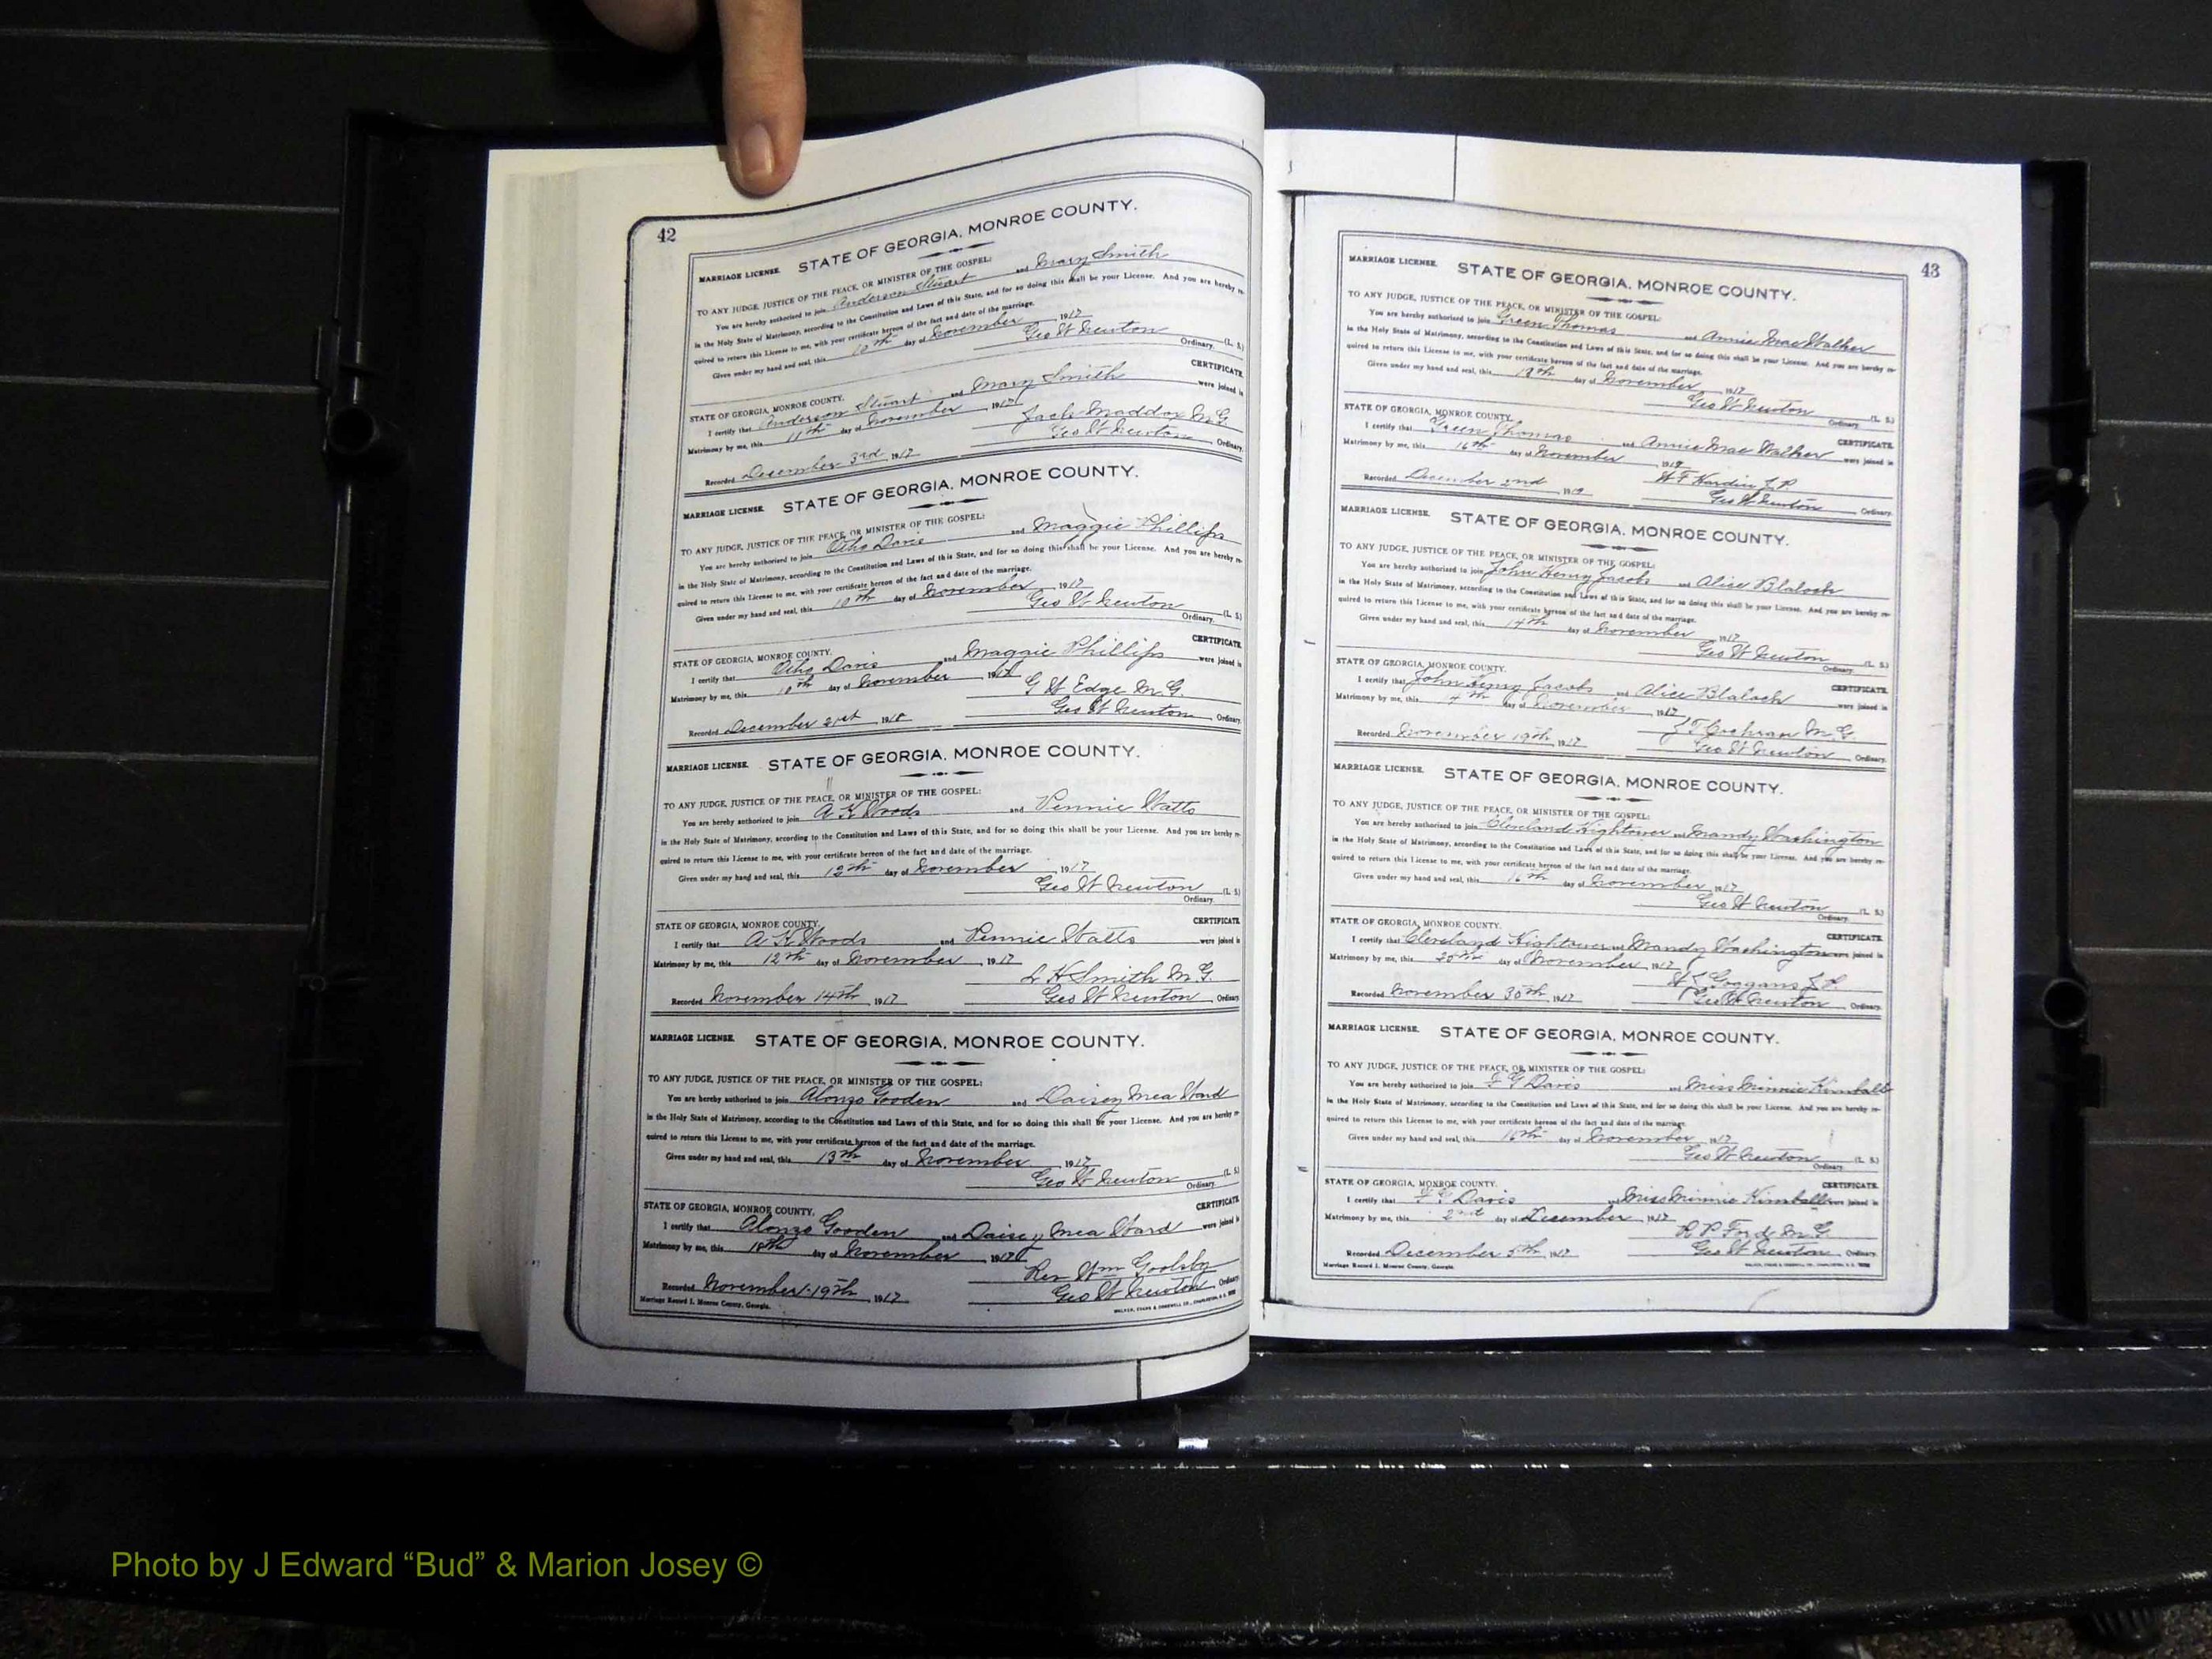 42
STATE OF GEORGIA, MONROE COUNTY.
MARRIAGE LICENSE.
TO ANY JUDGE, JUSTICE OF THE PEACE, OR MINISTER OF THE GOSPEL:
You are hereby authorized to join Anderson Stuart and Mary Smith
in the Holy State of Matrimony, according to the Constitution and Laws of this State, and for so doing this shall be your License. And you are hereby re-
quired to return this License to me, with your certificate hereon of the fact and date of the marriage.
Given under my hand and seal, this 10th day of November, 1917
Geo W Newton (L. S.)
Ordinary.
STATE OF GEORGIA, MONROE COUNTY. CERTIFICATE.
I certify that Anderson Stuart and Mary Smith were joined in
Matrimony by me, this 11th day of November, 1917
Jack Maddox M.G.
Recorded December 3rd, 1917 Geo W Newton, Ordinary.
MARRIAGE LICENSE. STATE OF GEORGIA, MONROE COUNTY.
TO ANY JUDGE, JUSTICE OF THE PEACE, OR MINISTER OF THE GOSPEL:
You are hereby authorized to join Otho Davis and Maggie Phillips
in the Holy State of Matrimony, according to the Constitution and Laws of this State, and for so doing this shall be your License. And you are hereby re-
quired to return this License to me, with your certificate hereon of the fact and date of the marriage.
Given under my hand and seal, this 10th day of November, 1917
Geo W Newton (L. S.)
Ordinary.
STATE OF GEORGIA, MONROE COUNTY. CERTIFICATE.
I certify that Otho Davis and Maggie Phillips were joined in
Matrimony by me, this 10th day of November,
G W Edge M.G.
Recorded December 21st, 1918 Geo W Newton, Ordinary.
MARRIAGE LICENSE. STATE OF GEORGIA, MONROE COUNTY.
TO ANY JUDGE, JUSTICE OF THE PEACE, OR MINISTER OF THE GOSPEL:
You are hereby authorized to join A K Woods and Pennie Watts
in the Holy State of Matrimony, according to the Constitution and Laws of this State, and for so doing this shall be your License. And you are hereby re-
quired to return this License to me, with your certificate hereon of the fact and date of the marriage.
Given under my hand and seal, this 12th day of November, 1917
Geo W Newton (L. S.)
Ordinary.
STATE OF GEORGIA, MONROE COUNTY. CERTIFICATE.
I certify that A K Woods and Pennie Watts were joined in
Matrimony by me, this 12th day of November, 1917
L H Smith M.G.
Recorded November 14th, 1917 Geo W Newton, Ordinary.
MARRIAGE LICENSE. STATE OF GEORGIA, MONROE COUNTY.
TO ANY JUDGE, JUSTICE OF THE PEACE, OR MINISTER OF THE GOSPEL:
You are hereby authorized to join Alonzo Gooden and Daisey Mea Ward
in the Holy State of Matrimony, according to the Constitution and Laws of this State, and for so doing this shall be your License. And you are hereby re-
quired to return this License to me, with your certificate hereon of the fact and date of the marriage.
Given under my hand and seal, this 13th day of November, 1917
Geo W Newton (L. S.)
Ordinary.
STATE OF GEORGIA, MONROE COUNTY. CERTIFICATE.
I certify that Alonzo Gooden and Daisey Mea Ward were joined in
Matrimony by me, this 18th day of November, 1917
Rev Wm Goolsby
Recorded November 19th, 1917 Geo W Newton, Ordinary.
Marriage Record J. Monroe County, Georgia. WALKER, EVANS & COGSWELL CO., CHARLESTON, S. C.
43
MARRIAGE LICENSE. STATE OF GEORGIA, MONROE COUNTY.
TO ANY JUDGE, JUSTICE OF THE PEACE, OR MINISTER OF THE GOSPEL:
You are hereby authorized to join Green Thomas and Annie Mae Walker
in the Holy State of Matrimony, according to the Constitution and Laws of this State, and for so doing this shall be your License. And you are hereby re-
quired to return this License to me, with your certificate hereon of the fact and date of the marriage.
Given under my hand and seal, this day of November, 1917
Geo W Newton (L. S.)
Ordinary.
STATE OF GEORGIA, MONROE COUNTY. CERTIFICATE.
I certify that Green Thomas and Annie Mae Walker were joined in
Matrimony by me, this 16th day of November,
H F Hardin J.P.
Recorded December 2nd, 1919 Geo W Newton, Ordinary.
MARRIAGE LICENSE. STATE OF GEORGIA, MONROE COUNTY.
TO ANY JUDGE, JUSTICE OF THE PEACE, OR MINISTER OF THE GOSPEL:
You are hereby authorized to join John Henry Jacobs and Alice Blalock
in the Holy State of Matrimony, according to the Constitution and Laws of this State, and for so doing this shall be your License. And you are hereby re-
quired to return this License to me, with your certificate hereon of the fact and date of the marriage.
Given under my hand and seal, this 14th day of November, 1917
Geo W Newton (L. S.)
Ordinary.
STATE OF GEORGIA, MONROE COUNTY. CERTIFICATE.
I certify that John Henry Jacobs and Alice Blalock were joined in
Matrimony by me, this day of November, 1917
Cochran M.G.
Recorded November 19th, 1917 Geo W Newton, Ordinary.
MARRIAGE LICENSE. STATE OF GEORGIA, MONROE COUNTY.
TO ANY JUDGE, JUSTICE OF THE PEACE, OR MINISTER OF THE GOSPEL:
You are hereby authorized to join Cleveland Hightower and Mandy Washington
in the Holy State of Matrimony, according to the Constitution and Laws of this State, and for so doing this shall be your License. And you are hereby re-
quired to return this License to me, with your certificate hereon of the fact and date of the marriage.
Given under my hand and seal, this 16th day of November, 1917
Geo W Newton (L. S.)
Ordinary.
STATE OF GEORGIA, MONROE COUNTY. CERTIFICATE.
I certify that Cleveland Hightower and Mandy Washington were joined in
Matrimony by me, this day of November, 1917
Goggans J.P.
Recorded November 30th, 1917 Geo W Newton, Ordinary.
MARRIAGE LICENSE. STATE OF GEORGIA, MONROE COUNTY.
TO ANY JUDGE, JUSTICE OF THE PEACE, OR MINISTER OF THE GOSPEL:
You are hereby authorized to join F G Davis and Miss Minnie Kimball
in the Holy State of Matrimony, according to the Constitution and Laws of this State, and for so doing this shall be your License. And you are hereby re-
quired to return this License to me, with your certificate hereon of the fact and date of the marriage.
Given under my hand and seal, this 16th day of November, 1917
Geo W Newton (L. S.)
Ordinary.
STATE OF GEORGIA, MONROE COUNTY. CERTIFICATE.
I certify that F G Davis and Miss Minnie Kimball were joined in
Matrimony by me, this 2nd day of December, 1917
R P Ford M.G.
Recorded December 5th, 1917 Geo W Newton, Ordinary.
Marriage Record J. Monroe County, Georgia. WALKER, EVANS & COGSWELL CO., CHARLESTON, S. C.
Photo by J Edward “Bud” & Marion Josey ©